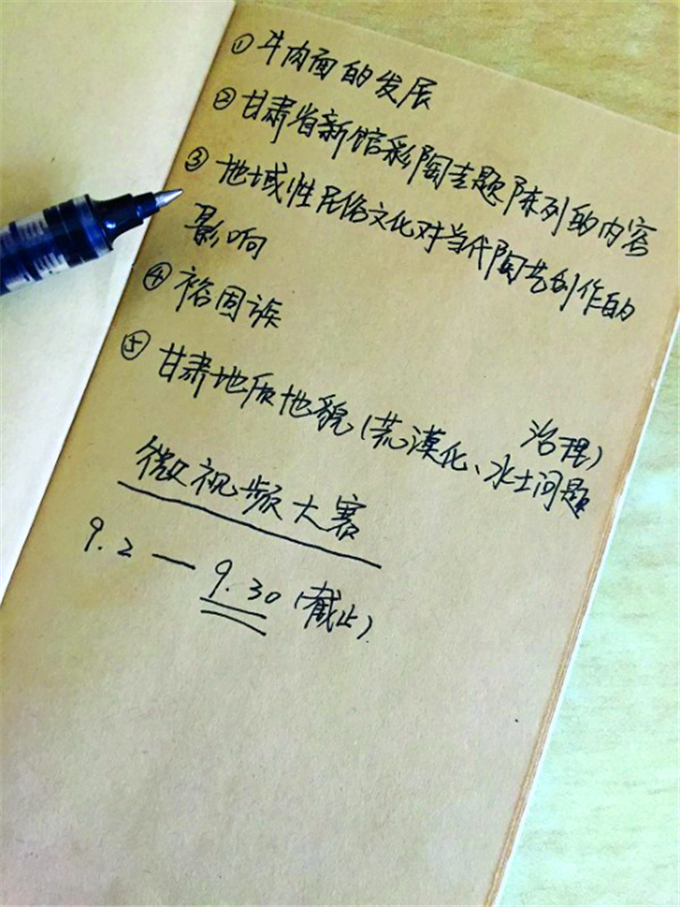 ① 牛肉面的发展
② 甘肃省新馆彩陶主题陈列的内容
③ 地域性民俗文化对当代陶艺创作的
影响
④ 裕固族
⑤ 甘肃地质地貌(荒漠化、水土问题
治理)
微视频大赛
9.2 — 9.30 (截止)